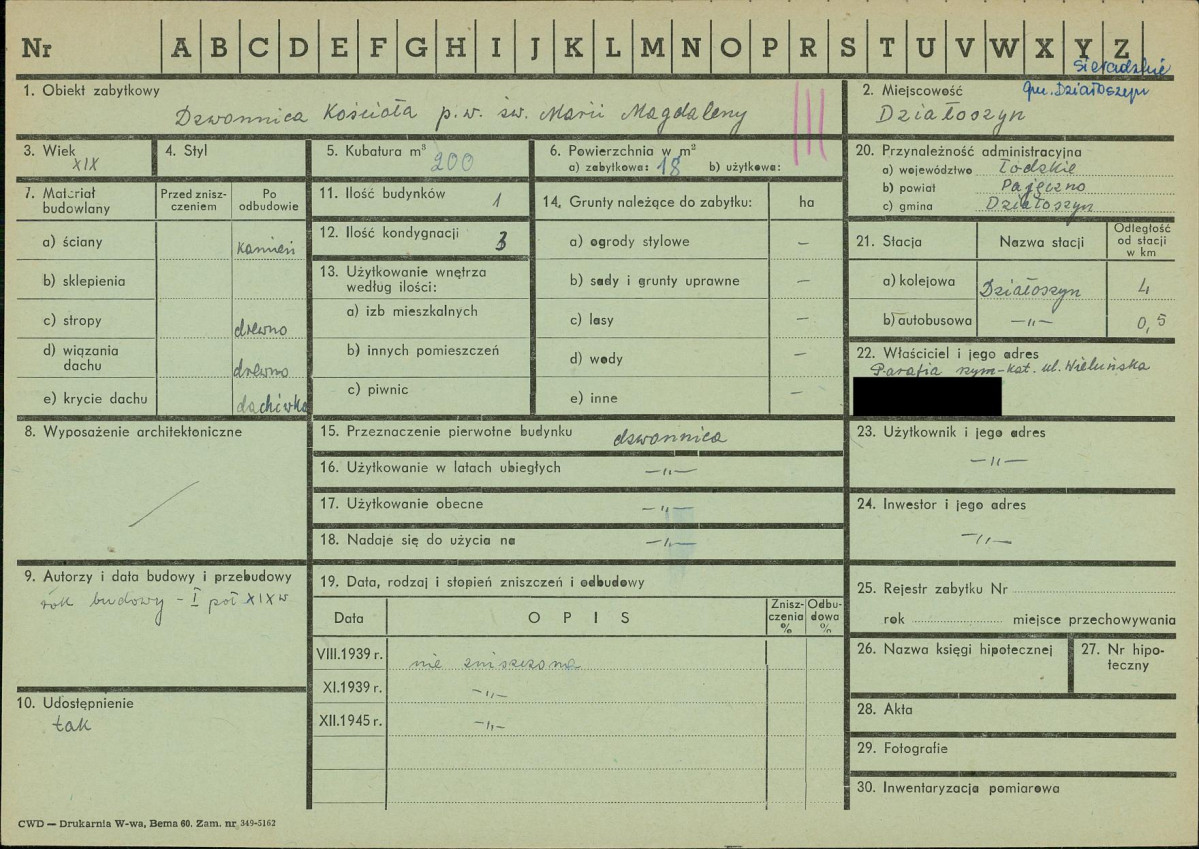 Nr A B C D E F G H I J K L M N O P R S T U V W X Y Z
sieradzkie
gm. Działoszyn
1. Obiekt zabytkowy
Dzwonnica Kościoła p.w. św. Marii Magdaleny
III
2. Miejscowość
Działoszyn
3. Wiek
XIX
4. Styl
5. Kubatura m³
200
6. Powierzchnia w m²
a) zabytkowa: 18 b) użytkowa:
20. Przynależność administracyjna
a) województwo Łódzkie
b) powiat Pajęczno
c) gmina Działoszyn
7. Materiał budowlany
Przed zniszczeniem
Po odbudowie
a) ściany kamień
b) sklepienia
c) stropy drewno
d) wiązania dachu drewno
e) krycie dachu dachówka
11. Ilość budynków 1
12. Ilość kondygnacji 3
13. Użytkowanie wnętrza
według ilości:
a) izb mieszkalnych
b) innych pomieszczeń
c) piwnic
14. Grunty należące do zabytku: ha
a) ogrody stylowe –
b) sady i grunty uprawne –
c) lasy –
d) wody –
e) inne –
21. Stacja Nazwa stacji Odległość od stacji w km
a) kolejowa Działoszyn 4
b) autobusowa –„– 0,5
22. Właściciel i jego adres
Parafia rzym-kat. ul. Wieluńska
8. Wyposażenie architektoniczne
15. Przeznaczenie pierwotne budynku dzwonnica
16. Użytkowanie w latach ubiegłych –„–
17. Użytkowanie obecne –„–
18. Nadaje się do użycia na –„–
23. Użytkownik i jego adres
–„–
24. Inwestor i jego adres
–„–
9. Autorzy i data budowy i przebudowy
rok budowy – I poł XIX w
10. Udostępnienie
tak
19. Data, rodzaj i stopień zniszczeń i odbudowy
Data O P I S Zniszczenia % Odbudowa %
VIII.1939 r. nie zniszczona
XI.1939 r. –„–
XII.1945 r. –„–
25. Rejestr zabytku Nr
rok miejsce przechowywania
26. Nazwa księgi hipotecznej
27. Nr hipoteczny
28. Akta
29. Fotografie
30. Inwentaryzacja pomiarowa
CWD — Drukarnia W-wa, Bema 60. Zam. nr 349-5162